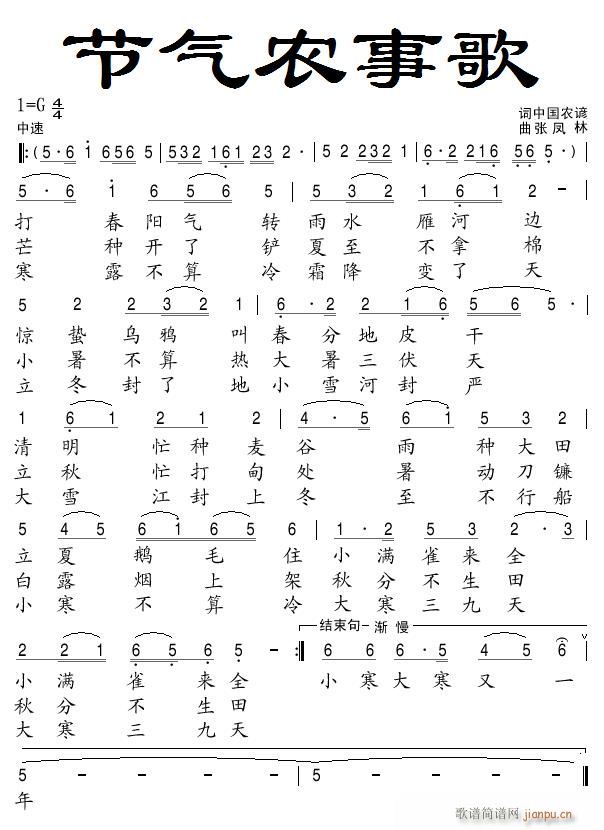 节气农事歌
1=G 4/4
词中国农谚
中速
曲张凤林
‖:(5·6 1 656 5 | 532 161 23 2· | 5 2 2321 2 | 6·2 216 56 5·)|
5·6 1 6 5 6 5 | 5 3 2 1 6 1 2 -
打春阳气转雨水雁河边
芒种开了铲夏至不拿棉
寒露不算冷霜降变了天
5 2 2 2 3 2 1 | 6·2 2 1 6 5 6 5·|
惊蛰乌鸦叫春分地皮干
小暑不算热大暑三伏天
立冬封了地小雪河封严
1 6 1 2 1 2 | 4·5 6 1 5 3 2 |
清明忙种麦谷雨种大田
立秋忙打甸处暑动刀镰
大雪江封上冬至不行船
5 4 5 6 1 6 5 5 | 1·2 4 5 5 2·3 |
立夏鹅毛住小满雀来全
白露烟上架秋分不生田
小寒不算冷大寒三九天
结束句-渐慢
2 2 1 6 5 6 5 - :‖ 6 6 6·5 4 5 6 ∨
小满雀来全 小寒大寒又一
秋分不生田
大寒三九天
5 - - - | 5 - - - ‖
年
歌谱简谱网
jianpu.cn